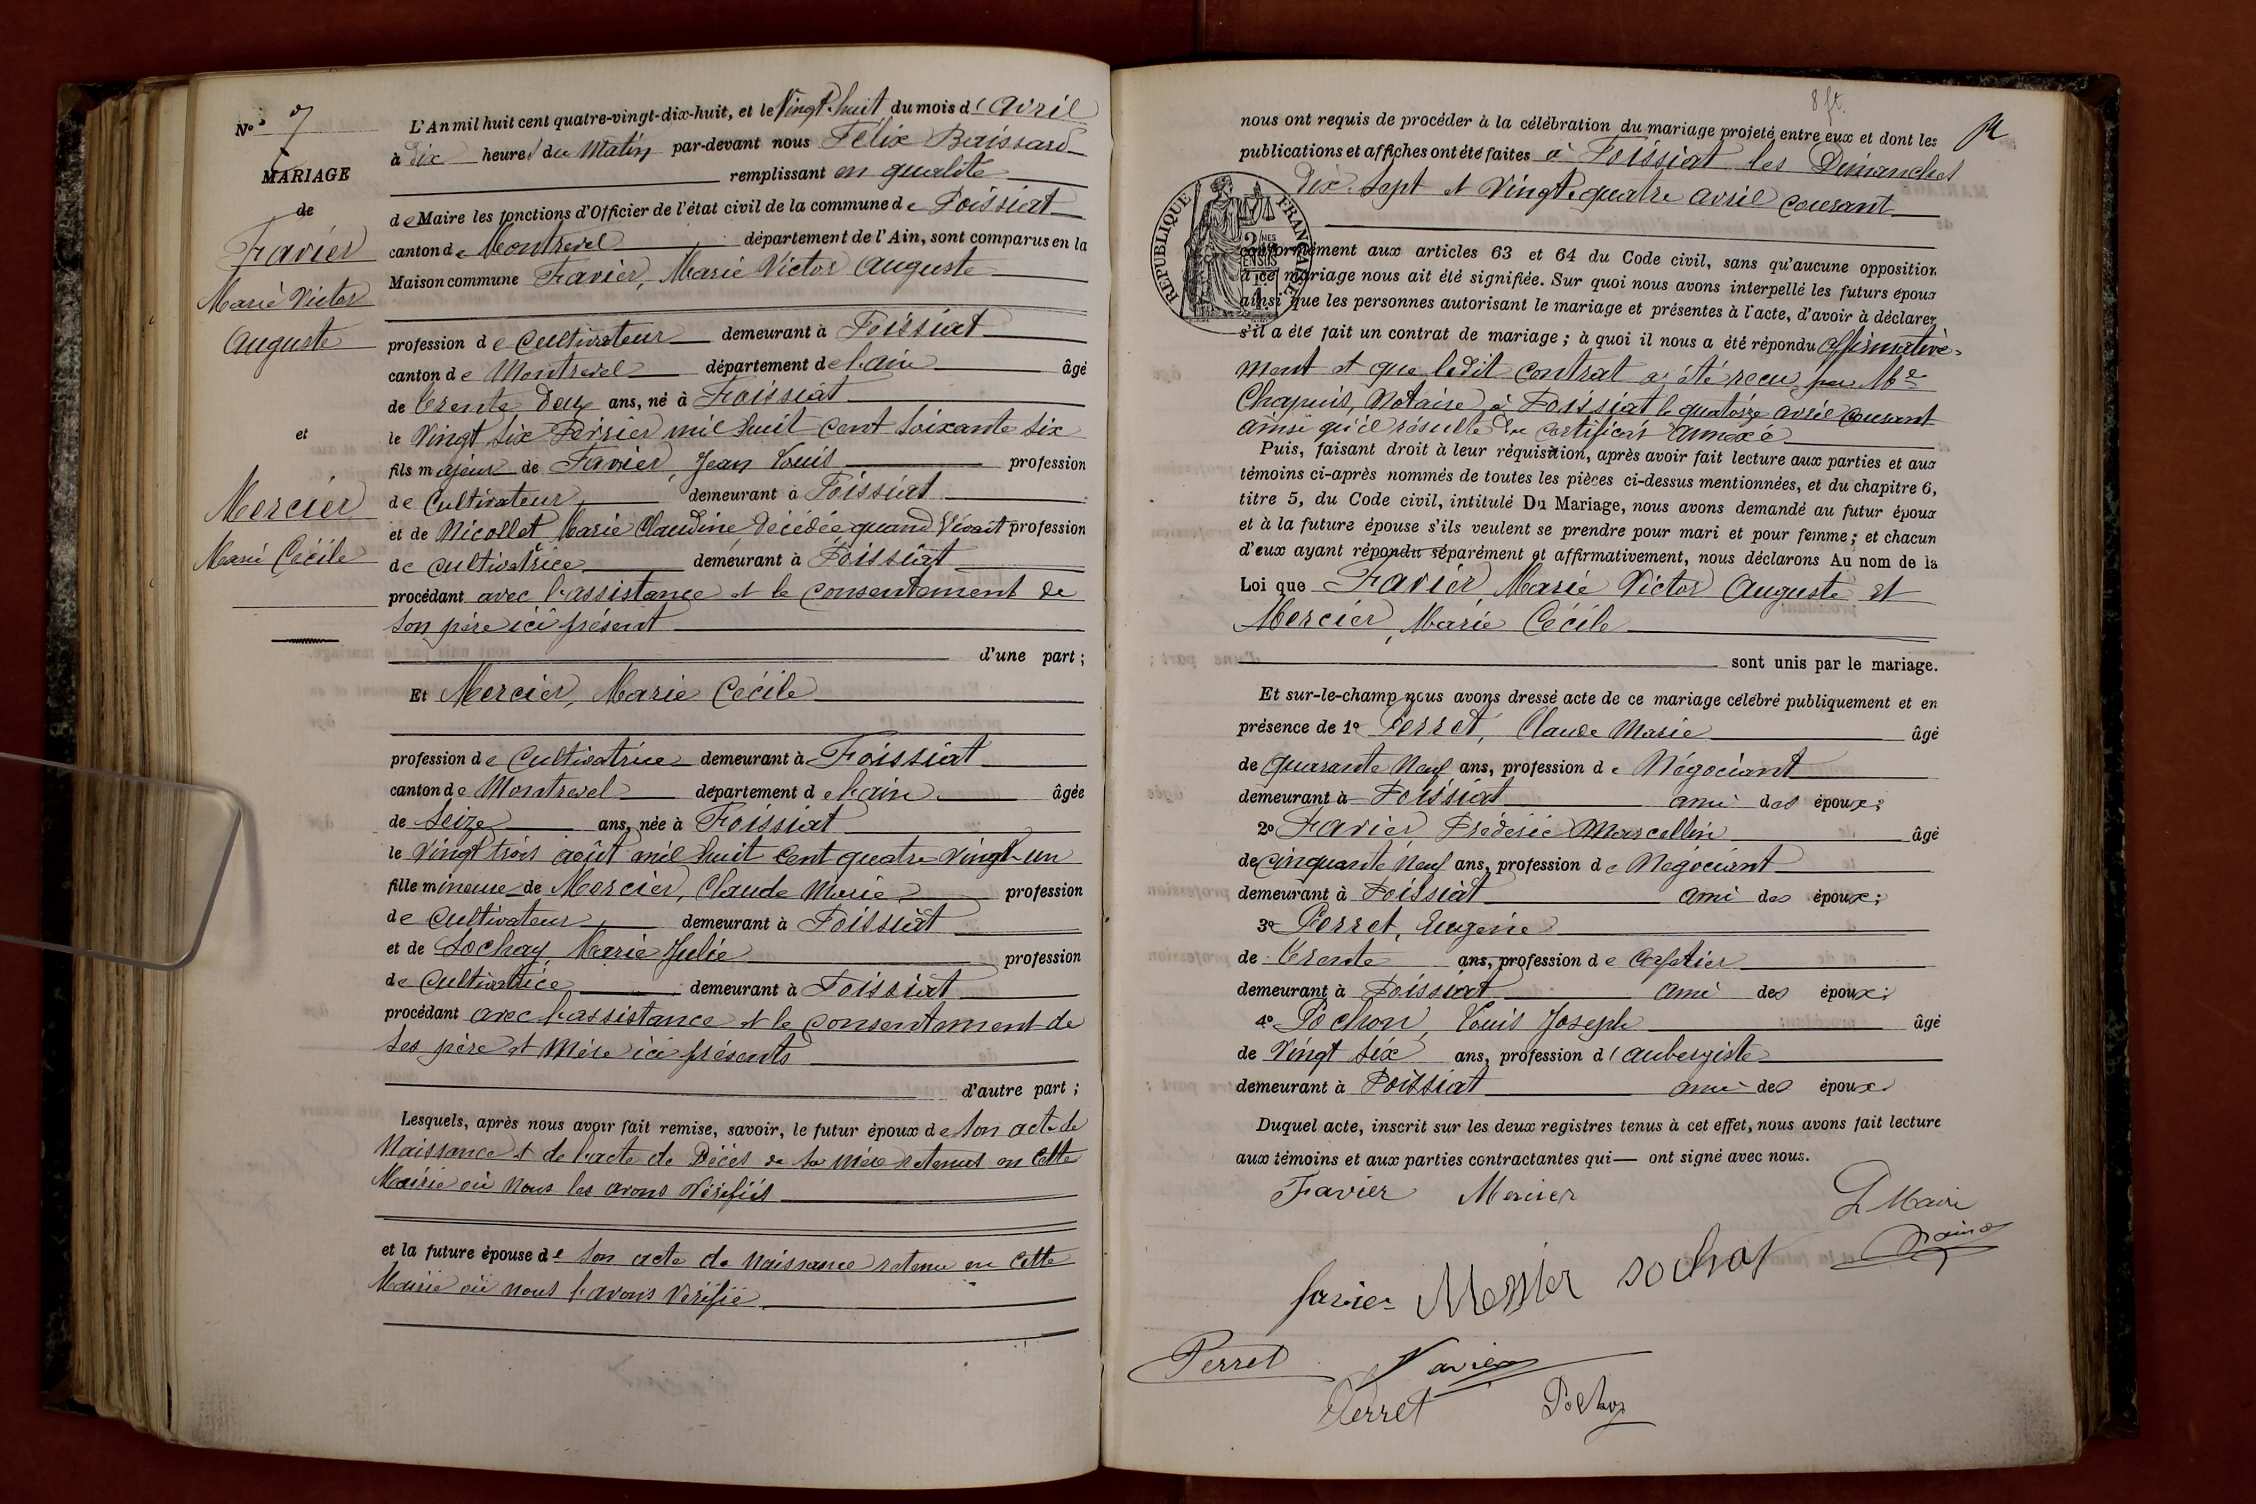 N° 7
MARIAGE
de
Favier
Marie Victor
Auguste
et
Mercier
Marie Cécile
L'An mil huit cent quatre-vingt-dix-huit, et le Vingt-huit du mois d'avril
à dix heures du Matin par-devant nous Félix Baissard
remplissant en qualité
de Maire les fonctions d'Officier de l'état civil de la commune de Foissiat
canton de Montrevel département de l'Ain, sont comparus en la
Maison commune Favier, Marie Victor Auguste
profession de Cultivateur demeurant à Foissiat
canton de Montrevel département de l'ain âgé
de trente deux ans, né à Foissiat
le Vingt six Février mil huit cent soixante six
fils majeur de Favier Jean Louis profession
de Cultivateur demeurant à Foissiat
et de Nicollet Marie Claudine, décédée quand vivait profession
de cultivatrice demeurant à Foissiat
procédant avec l'assistance et le consentement de
son père ici présent
d'une part;
Et Mercier, Marie Cécile
profession de Cultivatrice demeurant à Foissiat
canton de Montrevel département de l'ain âgée
de Seize ans, née à Foissiat
le Vingt trois août mil huit cent quatre vingt un
fille mineure de Mercier, Claude Marie profession
de Cultivateur demeurant à Foissiat
et de Sochay, Marie Julie profession
de Cultivatrice demeurant à Foissiat
procédant avec l'assistance et le consentement de
ses père et Mère ici présents
d'autre part;
Lesquels, après nous avoir fait remise, savoir, le futur époux de son acte de
Naissance et de l'acte de Décès de sa mère retenus en cette
Mairie où Nous les avons Vérifiés
et la future épouse de son acte de Naissance retenu en cette
Mairie où nous l'avons Vérifié
8 ft.
nous ont requis de procéder à la célébration du mariage projeté entre eux et dont les
publications et affiches ont été faites à Foissiat les Dimanches
Dix-Sept et Vingt-quatre avril courant
RÉPUBLIQUE FRANÇAISE
2 MES
EN SUS
conformément aux articles 63 et 64 du Code civil, sans qu'aucune opposition
à ce mariage nous ait été signifiée. Sur quoi nous avons interpellé les futurs époux
ainsi que les personnes autorisant le mariage et présentes à l'acte, d'avoir à déclarer
s'il a été fait un contrat de mariage; à quoi il nous a été répondu affirmative-
ment et que ledit contrat a été reçu par Me
Chapuis, Notaire à Foissiat le quatorze avril courant
ainsi qu'il résulte du certificat annexé
Puis, faisant droit à leur réquisition, après avoir fait lecture aux parties et aux
témoins ci-après nommés de toutes les pièces ci-dessus mentionnées, et du chapitre 6,
titre 5, du Code civil, intitulé Du Mariage, nous avons demandé au futur époux
et à la future épouse s'ils veulent se prendre pour mari et pour femme; et chacun
d'eux ayant répondu séparément et affirmativement, nous déclarons Au nom de la
Loi que Favier Marie Victor Auguste et
Mercier, Marie Cécile
sont unis par le mariage.
Et sur-le-champ nous avons dressé acte de ce mariage célébré publiquement et en
présence de 1° Perret, Claude Marie âgé
de quarante Neuf ans, profession de Négociant
demeurant à Foissiat ami des époux;
2° Favier Fréderic Marcellin âgé
de cinquante Neuf ans, profession de Négociant
demeurant à Foissiat ami des époux;
3° Perret, Eugenie
de trente ans, profession de Cafetier
demeurant à Foissiat ami des époux;
4° Pochon, Louis Joseph âgé
de Vingt six ans, profession d'aubergiste
demeurant à Foissiat ami des époux.
Duquel acte, inscrit sur les deux registres tenus à cet effet, nous avons fait lecture
aux témoins et aux parties contractantes qui ont signé avec nous.
Favier Mercier
Le Maire
favier Mercier sochay
Perret Favier
Perret Pochon